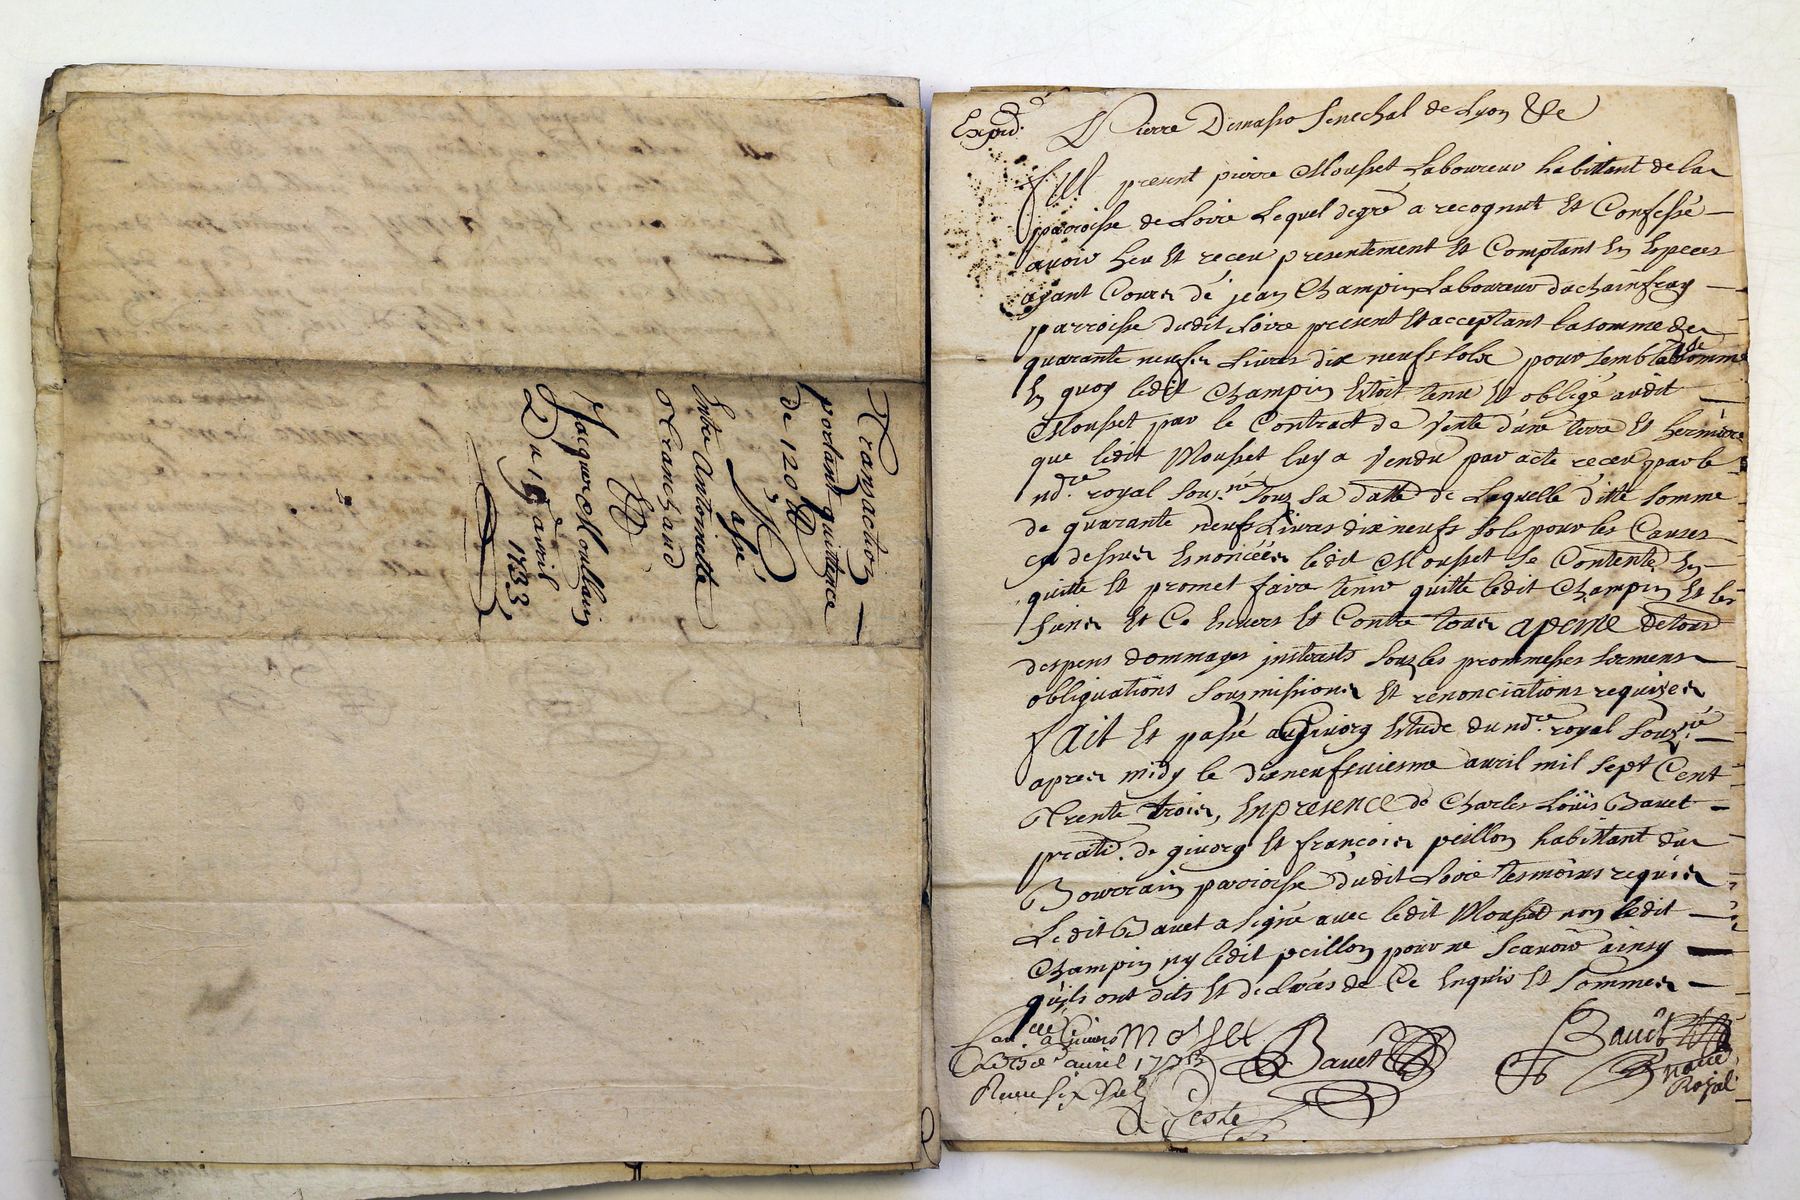 Transaction
portant quittance
de 120 ₶
Entre Antoinette
Tranchand
Et
Jacque Moullain
Du 19 avril
1733
Expéd.
Pierre Demasso Senechal de Lyon &c
Fut present pierre Mousset Laboureur habittant de la
parroisse de Loire Lequel degré a recognut Et Confessé
avoir heu Et receu presentement Et Comptant En Especes
ayant Cours dé jean Champin Laboureur dachainfray
parroisse dudit Loire present Et acceptant la somme de
quarante neufs Livres dix neufs sols pour semblable somme
En quoy ledit Champin Estoit tenu Et obligé audit
Mousset par le Contract de Vente d'une terre Et hermiere
que ledit Mousset luy a Vendu par acte receu par le
nore. royal sousné. sous sa datte de Laquelle ditte somme
de quarante neufs Livres dix neufs sols pour les Causes
cy dessus Enoncées ledit Mousset se Contente En
quitte Et promet faire tenir quitte ledit Champin Et les
siens Et Ce Envers Et Contre tous apeine de tous
despens dommages jnterests sous les prommesses sermens
obliguations sousmissions Et renonciations requises
FAIT Et passé a Givorg Estude du nore. royal sousné.
apres midy le dixneufsviesme avril mil sept Cent
Trente trois, En presence de Charles Loüis Bavet
prati. de givorg Et françois peillon habittant du
Bourrain parroisse dudit Loire tesmoins requis
Ledit Bavet a signé avec ledit Mousset non ledit
Champin ny ledit peillon pour ne scavoir ainsy
qu'ils ont dits Et declarés de Ce Enquis Et sommes
mosset
Bavet
Bavet
Nore
Royal
a Givors
avril 1733
Receu six